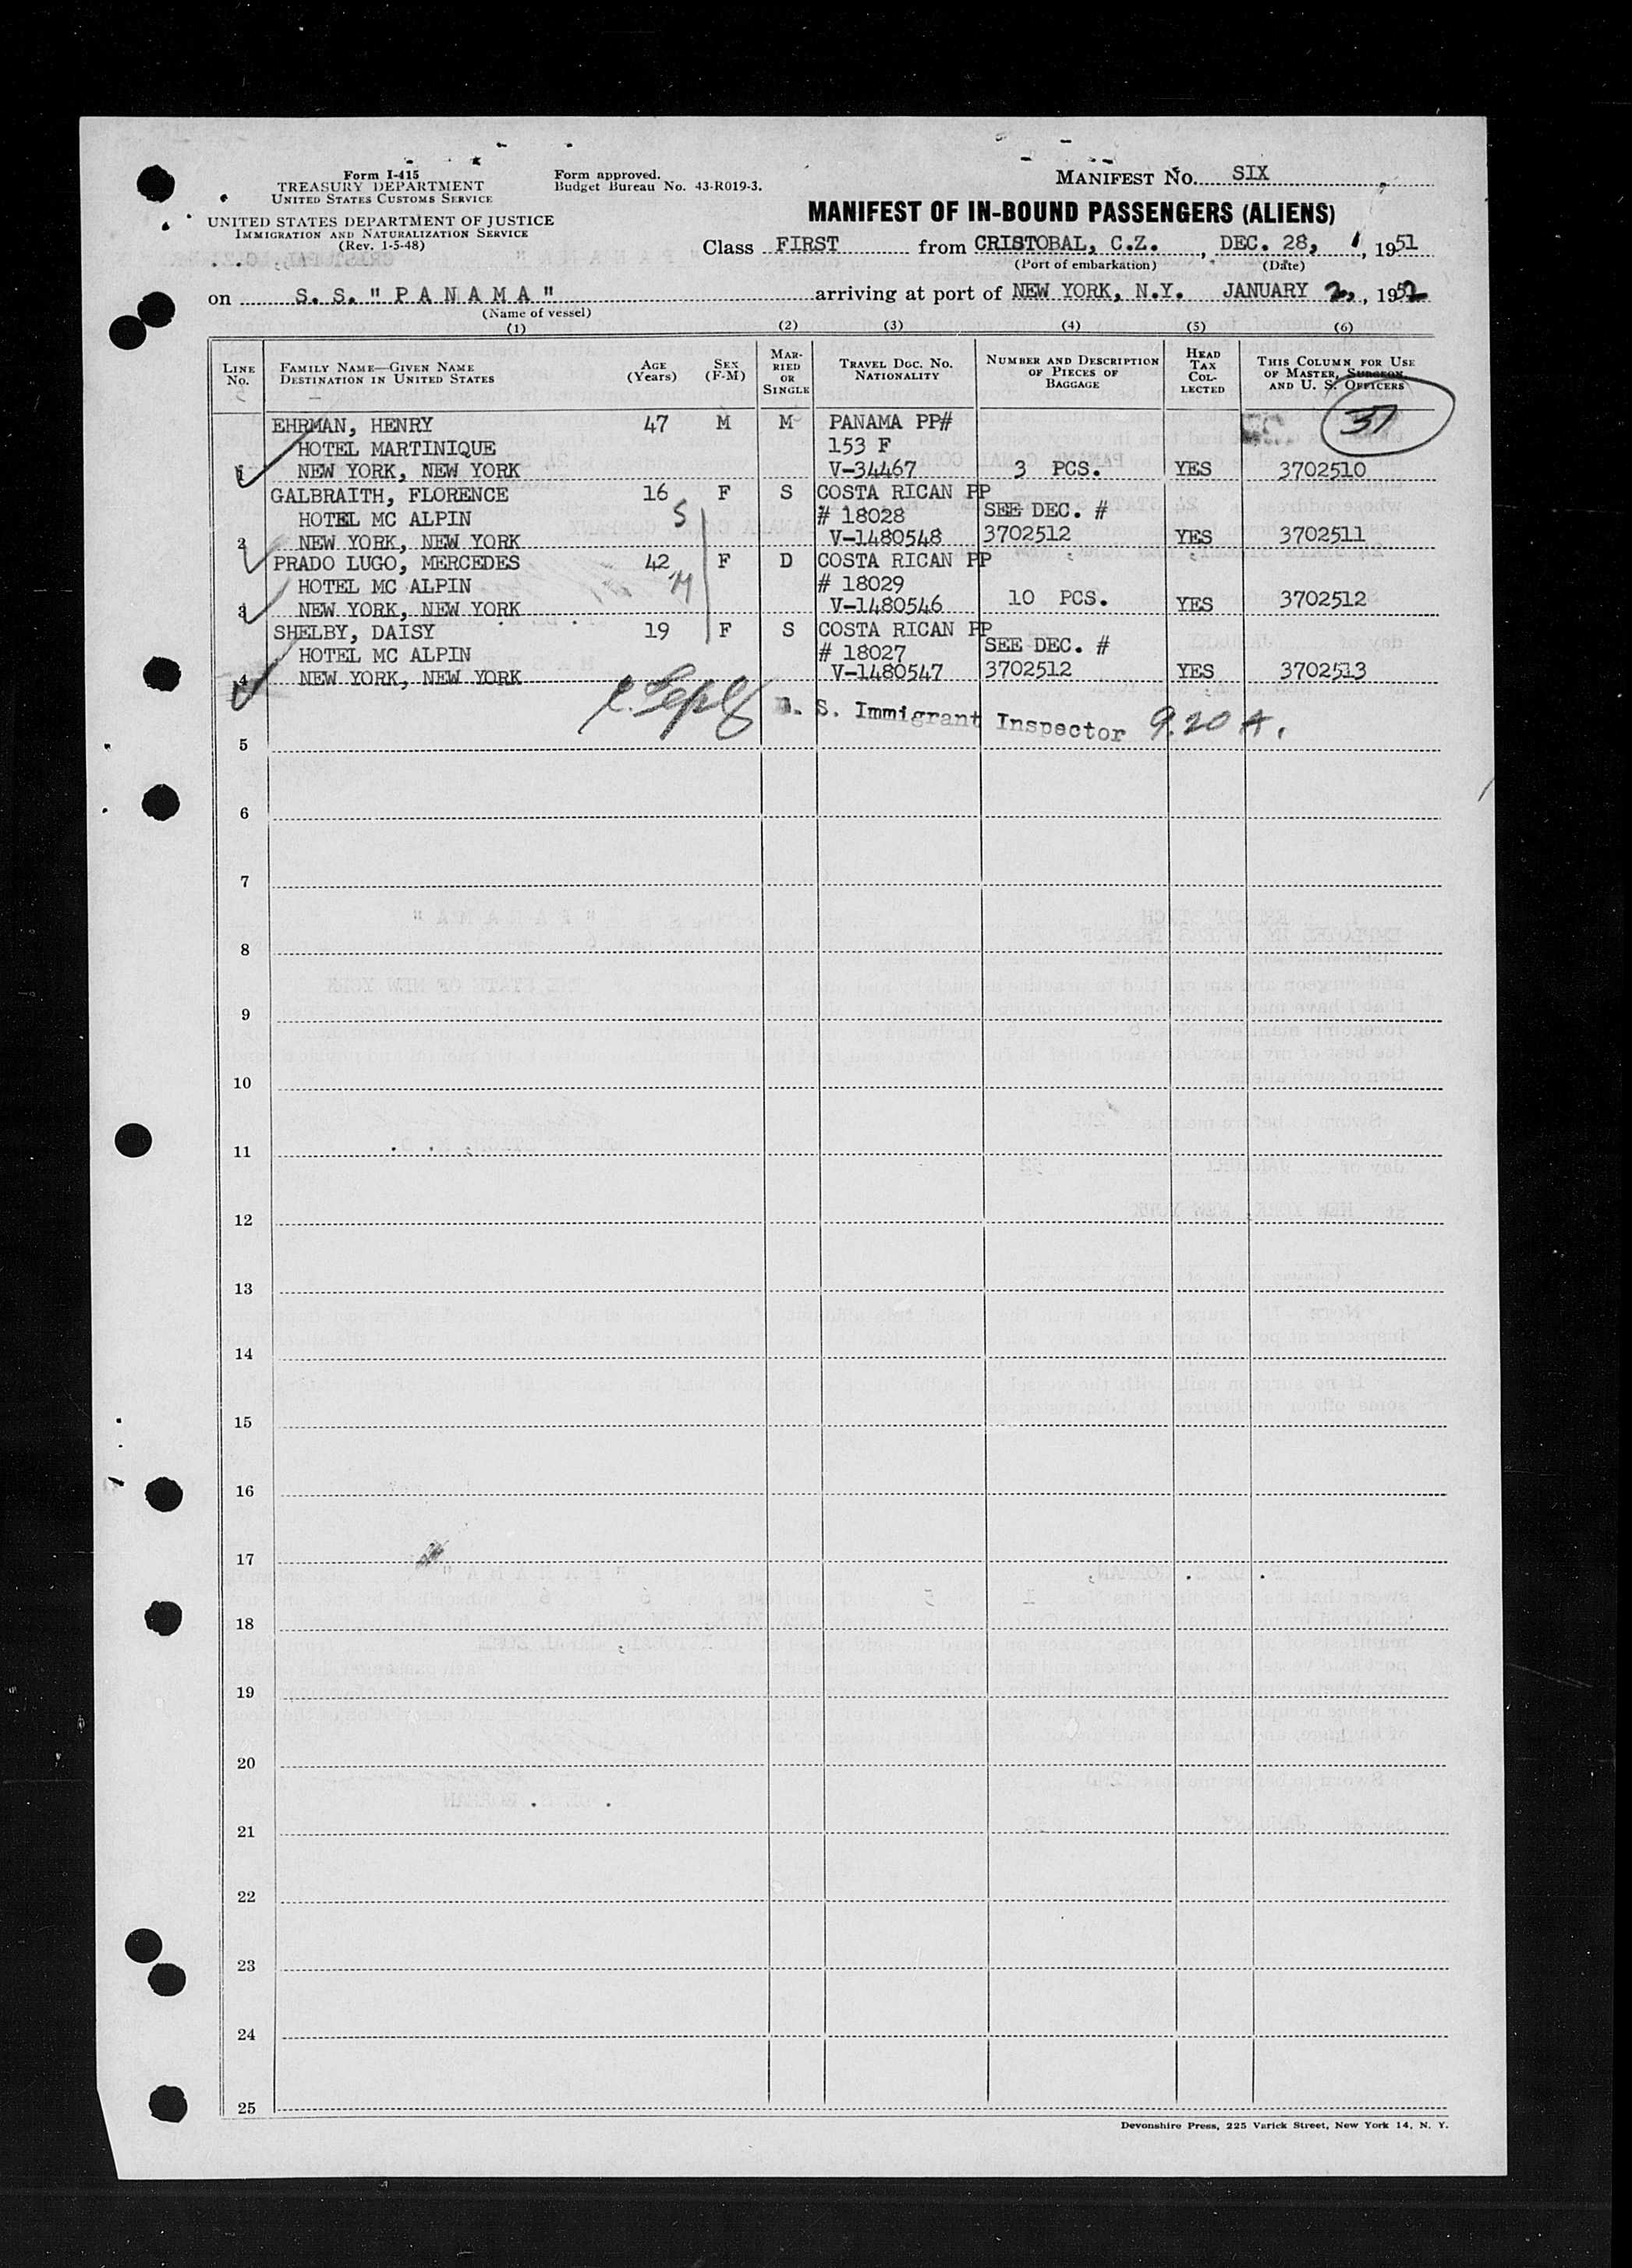 Form I-415
TREASURY DEPARTMENT
UNITED STATES CUSTOMS SERVICE
UNITED STATES DEPARTMENT OF JUSTICE
IMMIGRATION AND NATURALIZATION SERVICE
(Rev. 1-5-48)
Form approved.
Budget Bureau No. 43-R019-3.
MANIFEST No. SIX
MANIFEST OF IN-BOUND PASSENGERS (ALIENS)
Class FIRST from CRISTOBAL, C.Z., DEC. 28, 1951
(Port of embarkation) (Date)
on S. S. "PANAMA" arriving at port of NEW YORK, N.Y. JANUARY 2, 1952
(Name of vessel)
(1) (2) (3) (4) (5) (6)
LINE No. FAMILY NAME—GIVEN NAME DESTINATION IN UNITED STATES AGE (Years) SEX (F-M) MARRIED OR SINGLE TRAVEL DOC. NO. NATIONALITY NUMBER AND DESCRIPTION OF PIECES OF BAGGAGE HEAD TAX COLLECTED THIS COLUMN FOR USE OF MASTER, SURGEON, AND U. S. OFFICERS
37
EHRMAN, HENRY 47 M M PANAMA PP#
HOTEL MARTINIQUE 153 F
1 NEW YORK, NEW YORK V-34467 3 PCS. YES 3702510
GALBRAITH, FLORENCE 16 F S COSTA RICAN PP
HOTEL MC ALPIN S # 18028 SEE DEC. #
2 NEW YORK, NEW YORK V-1480548 3702512 YES 3702511
PRADO LUGO, MERCEDES 42 F D COSTA RICAN PP
HOTEL MC ALPIN M # 18029
3 NEW YORK, NEW YORK V-1480546 10 PCS. YES 3702512
SHELBY, DAISY 19 F S COSTA RICAN PP
HOTEL MC ALPIN # 18027 SEE DEC. #
4 NEW YORK, NEW YORK V-1480547 3702512 YES 3702513
S. Immigrant Inspector 9.20 A.
5
6
7
8
9
10
11
12
13
14
15
16
17
18
19
20
21
22
23
24
25
Devonshire Press, 225 Varick Street, New York 14, N. Y.